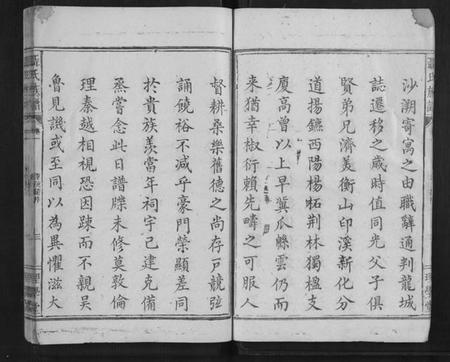 沙溯寄寓之由職辭通判龍城
誌遷移之歲時值同光父子俱
賢弟兄濟美衡山印溪新化分
道揚鑣西陽楊柘荆林獨楹支
慶高曾以上早冀瓜緜雲仍而
來猶幸椒衍賴先疇之可服人
督耕桑樂舊德之尚存戸競弦
誦饒裕不減乎豪門榮顯差同
於貴族羨當年祠宇己建克備
烝嘗念此日譜牒未修莫敦倫
理秦越相視恐因踈而不親吳
魯見譏或至同以為異懼滋大